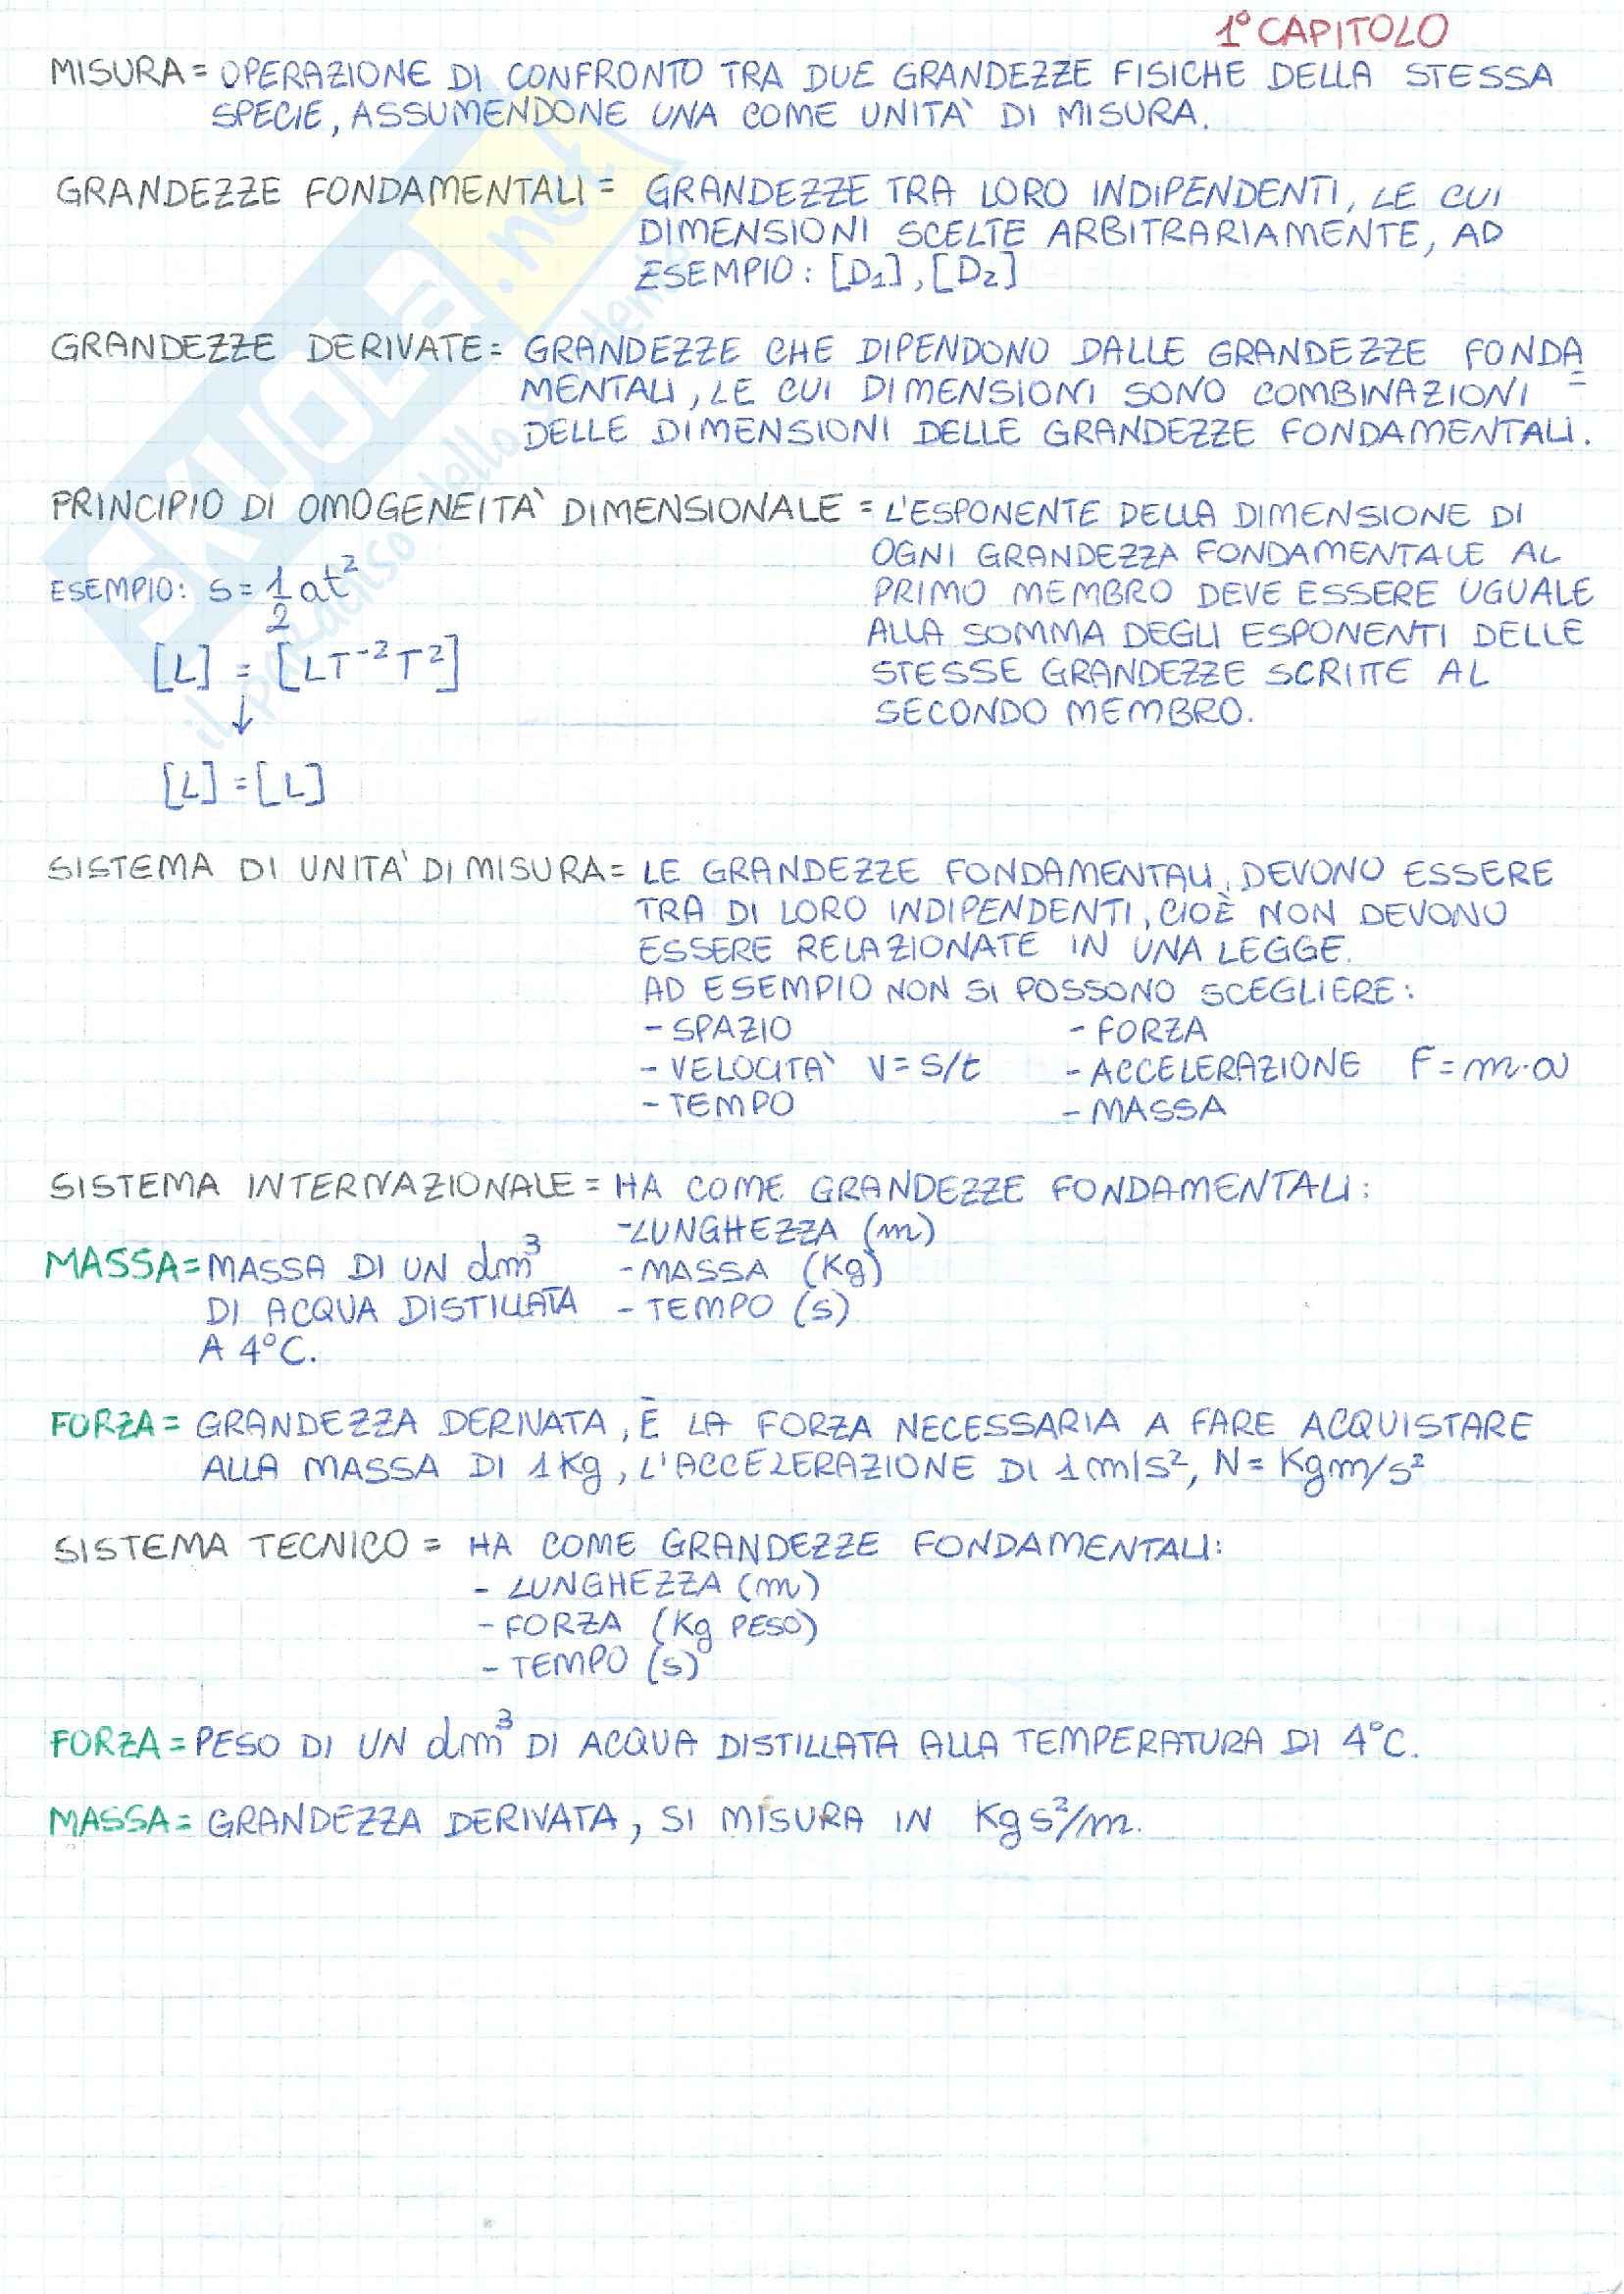 1° CAPITOLO
MISURA = OPERAZIONE DI CONFRONTO TRA DUE GRANDEZZE FISICHE DELLA STESSA
SPECIE, ASSUMENDONE UNA COME UNITÀ DI MISURA.
GRANDEZZE FONDAMENTALI = GRANDEZZE TRA LORO INDIPENDENTI, LE CUI
DIMENSIONI SCELTE ARBITRARIAMENTE, AD
ESEMPIO: [D1], [D2]
GRANDEZZE DERIVATE = GRANDEZZE CHE DIPENDONO DALLE GRANDEZZE FONDA=
MENTALI, LE CUI DIMENSIONI SONO COMBINAZIONI
DELLE DIMENSIONI DELLE GRANDEZZE FONDAMENTALI.
PRINCIPIO DI OMOGENEITÀ DIMENSIONALE = L'ESPONENTE DELLA DIMENSIONE DI
OGNI GRANDEZZA FONDAMENTALE AL
PRIMO MEMBRO DEVE ESSERE UGUALE
ALLA SOMMA DEGLI ESPONENTI DELLE
STESSE GRANDEZZE SCRITTE AL
SECONDO MEMBRO.
ESEMPIO: s = 1/2 at²
[L] = [LT⁻²T²]
↓
[L] = [L]
SISTEMA DI UNITÀ DI MISURA = LE GRANDEZZE FONDAMENTALI, DEVONO ESSERE
TRA DI LORO INDIPENDENTI, CIOÈ NON DEVONO
ESSERE RELAZIONATE IN UNA LEGGE.
AD ESEMPIO NON SI POSSONO SCEGLIERE:
- SPAZIO - FORZA
- VELOCITÀ V = S/t - ACCELERAZIONE F = m·a
- TEMPO - MASSA
SISTEMA INTERNAZIONALE = HA COME GRANDEZZE FONDAMENTALI:
- LUNGHEZZA (m)
- MASSA (Kg)
- TEMPO (s)
MASSA = MASSA DI UN dm³
DI ACQUA DISTILLATA
A 4°C.
FORZA = GRANDEZZA DERIVATA, È LA FORZA NECESSARIA A FARE ACQUISTARE
ALLA MASSA DI 1Kg, L'ACCELERAZIONE DI 1m/s², N = Kgm/s²
SISTEMA TECNICO = HA COME GRANDEZZE FONDAMENTALI:
- LUNGHEZZA (m)
- FORZA (Kg PESO)
- TEMPO (s)
FORZA = PESO DI UN dm³ DI ACQUA DISTILLATA ALLA TEMPERATURA DI 4°C.
MASSA = GRANDEZZA DERIVATA, SI MISURA IN Kgs²/m.
SKUOLA.net
il paradiso dello studente